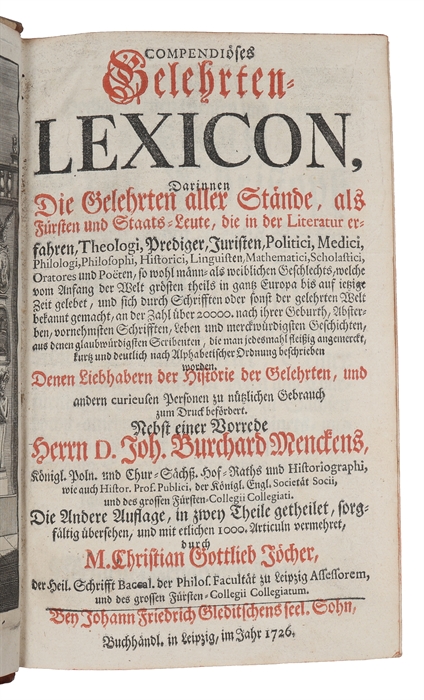 COMPENDIöses
Gelehrten-
LEXICON,
Darinnen
Die Gelehrten aller Stände, als
Fürsten und Staats-Leute, die in der Literatur er-
fahren, Theologi, Prediger, Juristen, Politici, Medici,
Philologi, Philosophi, Historici, Linguisten, Mathematici, Scholastici,
Oratores und Poëten, so wohl männ- als weiblichen Geschlechts, welche
vom Anfang der Welt grösten theils in gantz Europa bis auf ietzige
Zeit gelebet, und sich durch Schrifften oder sonst der gelehrten Welt
bekannt gemacht, an der Zahl über 20000. nach ihrer Geburth, Abster-
ben, vornehmsten Schrifften, Leben und merckwürdigsten Geschichten,
aus denen glaubwürdigsten Scribenten, die man jedesmahl fleißig angemerckt,
kurtz und deutlich nach Alphabetischer Ordnung beschrieben
worden.
Denen Liebhabern der Historie der Gelehrten, und
andern curieusen Personen zu nützlichen Gebrauch
zum Druck befördert.
Nebst einer Vorrede
Herrn D. Joh. Burchard Menckens,
Königl. Poln. und Chur-Sächß. Hof-Raths und Historiographi,
wie auch Histor. Prof. Publici, der Königl. Engl. Societät Socii,
und des grossen Fürsten-Collegii Collegiati.
Die Andere Auflage, in zwey Theile getheilet, sorg-
fältig übersehen, und mit etlichen 1000. Articuln vermehret,
durch
M. Christian Gottlieb Jöcher,
der Heil. Schrifft Baccal. der Philos. Facultät zu Leipzig Assessorem,
und des grossen Fürsten-Collegii Collegiatum.
Bey Johann Friedrich Gleditschens seel. Sohn,
Buchhändl. in Leipzig, im Jahr 1726.